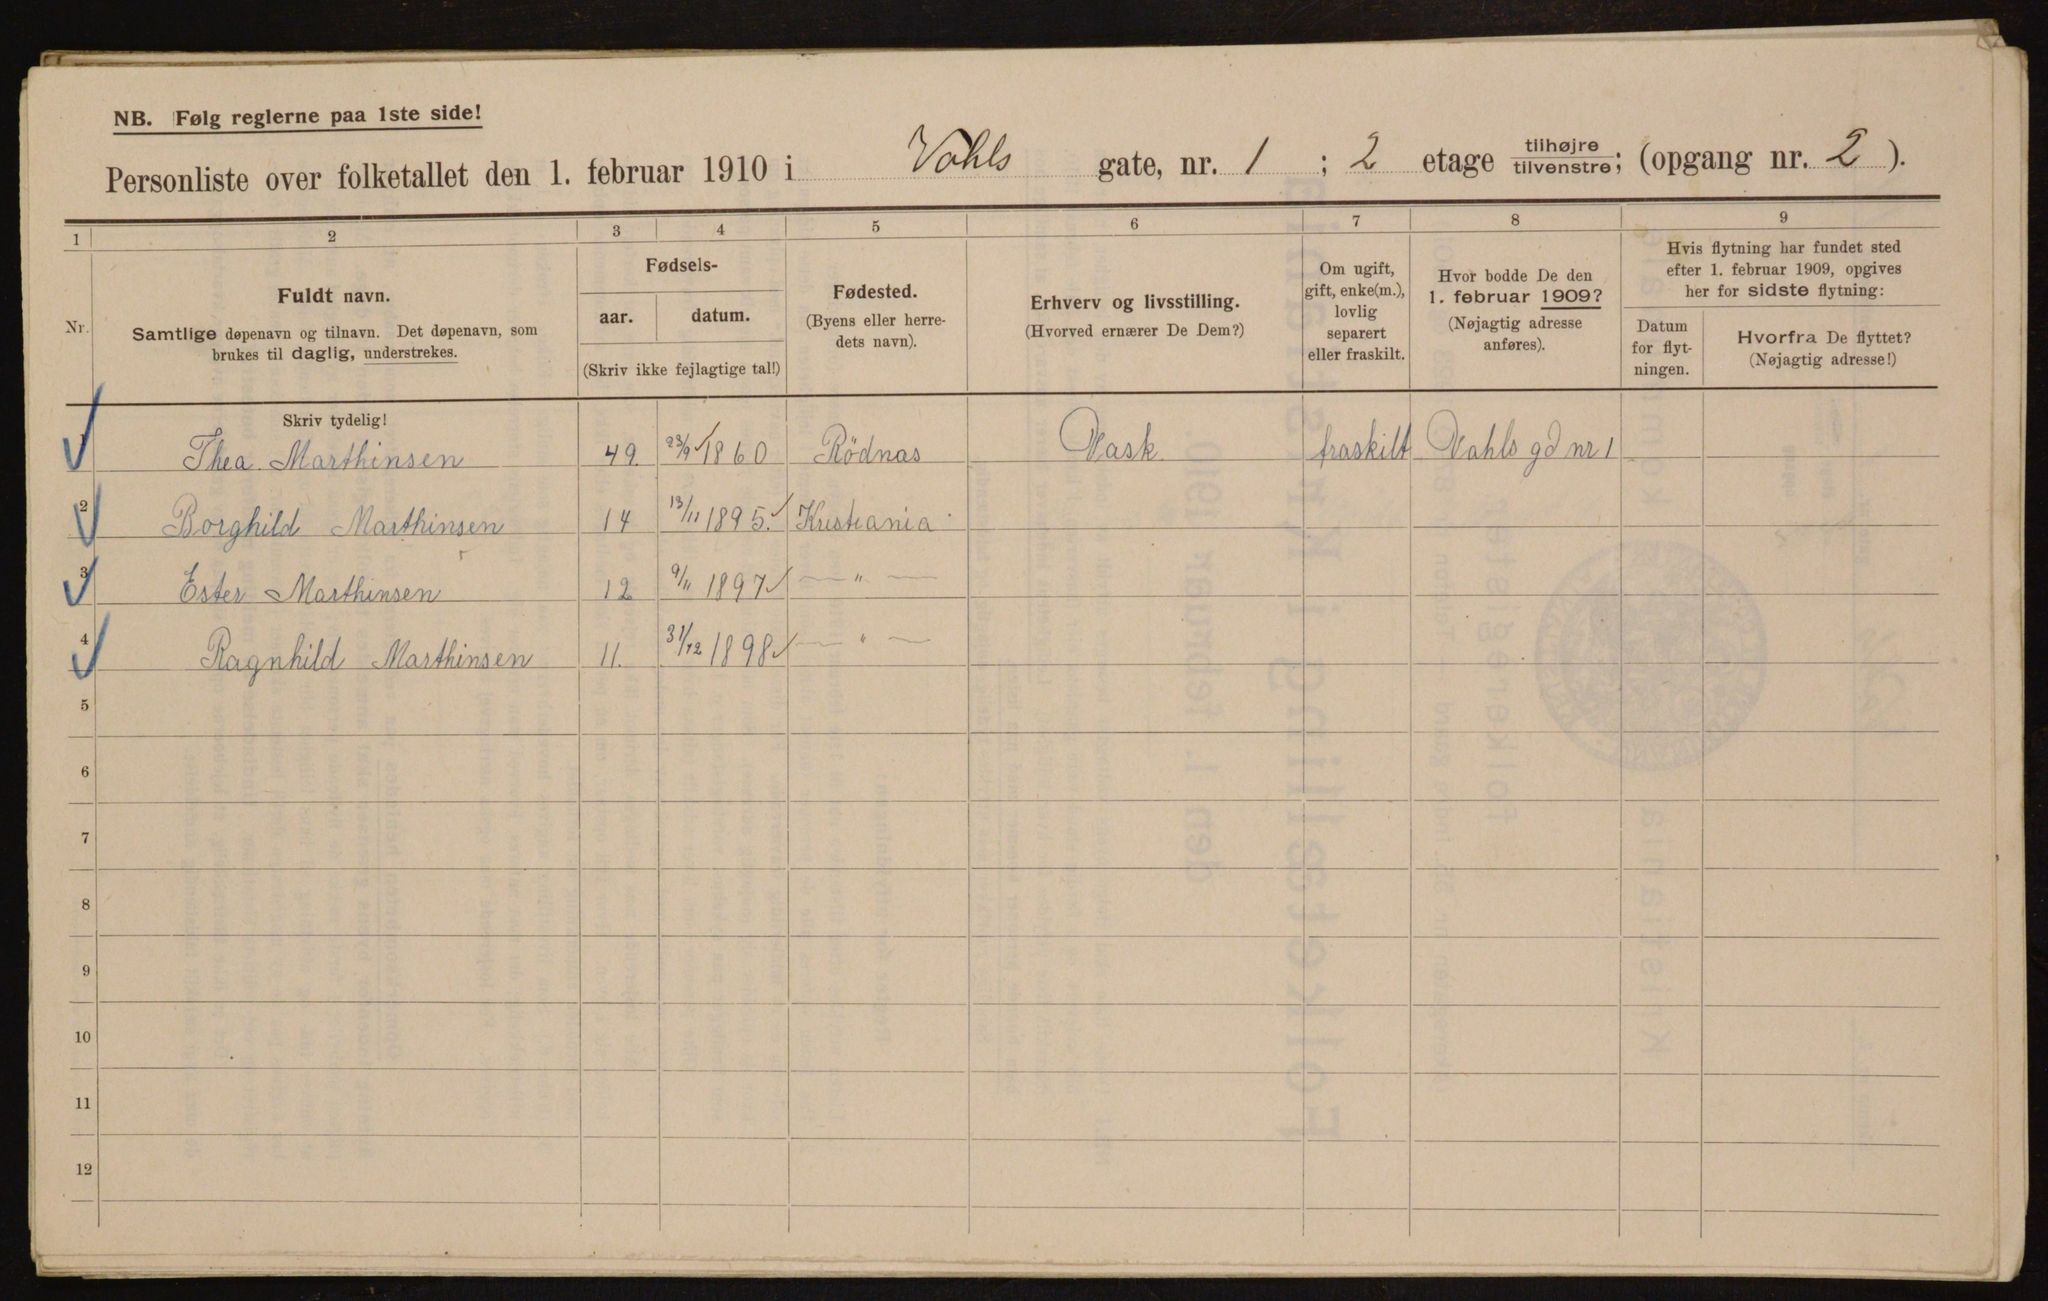 NB. Følg reglerne paa 1ste side!
Personliste over folketallet den 1. februar 1910 i Vahls gate, nr. 1 ; 2 etage tilhøjre/tilvenstre; (opgang nr. 2 ).
1 2 3 4 5 6 7 8 9
Nr.
Fuldt navn.
Samtlige døpenavn og tilnavn. Det døpenavn, som
brukes til daglig, understrekes.
Fødsels-
aar. datum.
(Skriv ikke fejlagtige tal!)
Fødested.
(Byens eller herre-
dets navn).
Erhverv og livsstilling.
(Hvorved ernærer De Dem?)
Om ugift,
gift, enke(m.),
lovlig
separert
eller fraskilt.
Hvor bodde De den
1. februar 1909?
(Nøjagtig adresse
anføres).
Hvis flytning har fundet sted
efter 1. februar 1909, opgives
her for sidste flytning:
Datum
for flyt-
ningen.
Hvorfra De flyttet?
(Nøjagtig adresse!)
Skriv tydelig!
1 Thea Marthinsen 49. 23/9 1860 Rödnas Vask fraskilt Vahls gd nr 1
2 Borghild Marthinsen 14 13/11 1895. Kristiania
3 Ester Marthinsen 12 9/11 1897 — " —
4 Ragnhild Marthinsen 11. 31/12 1898 — " —
5
6
7
8
9
10
11
12